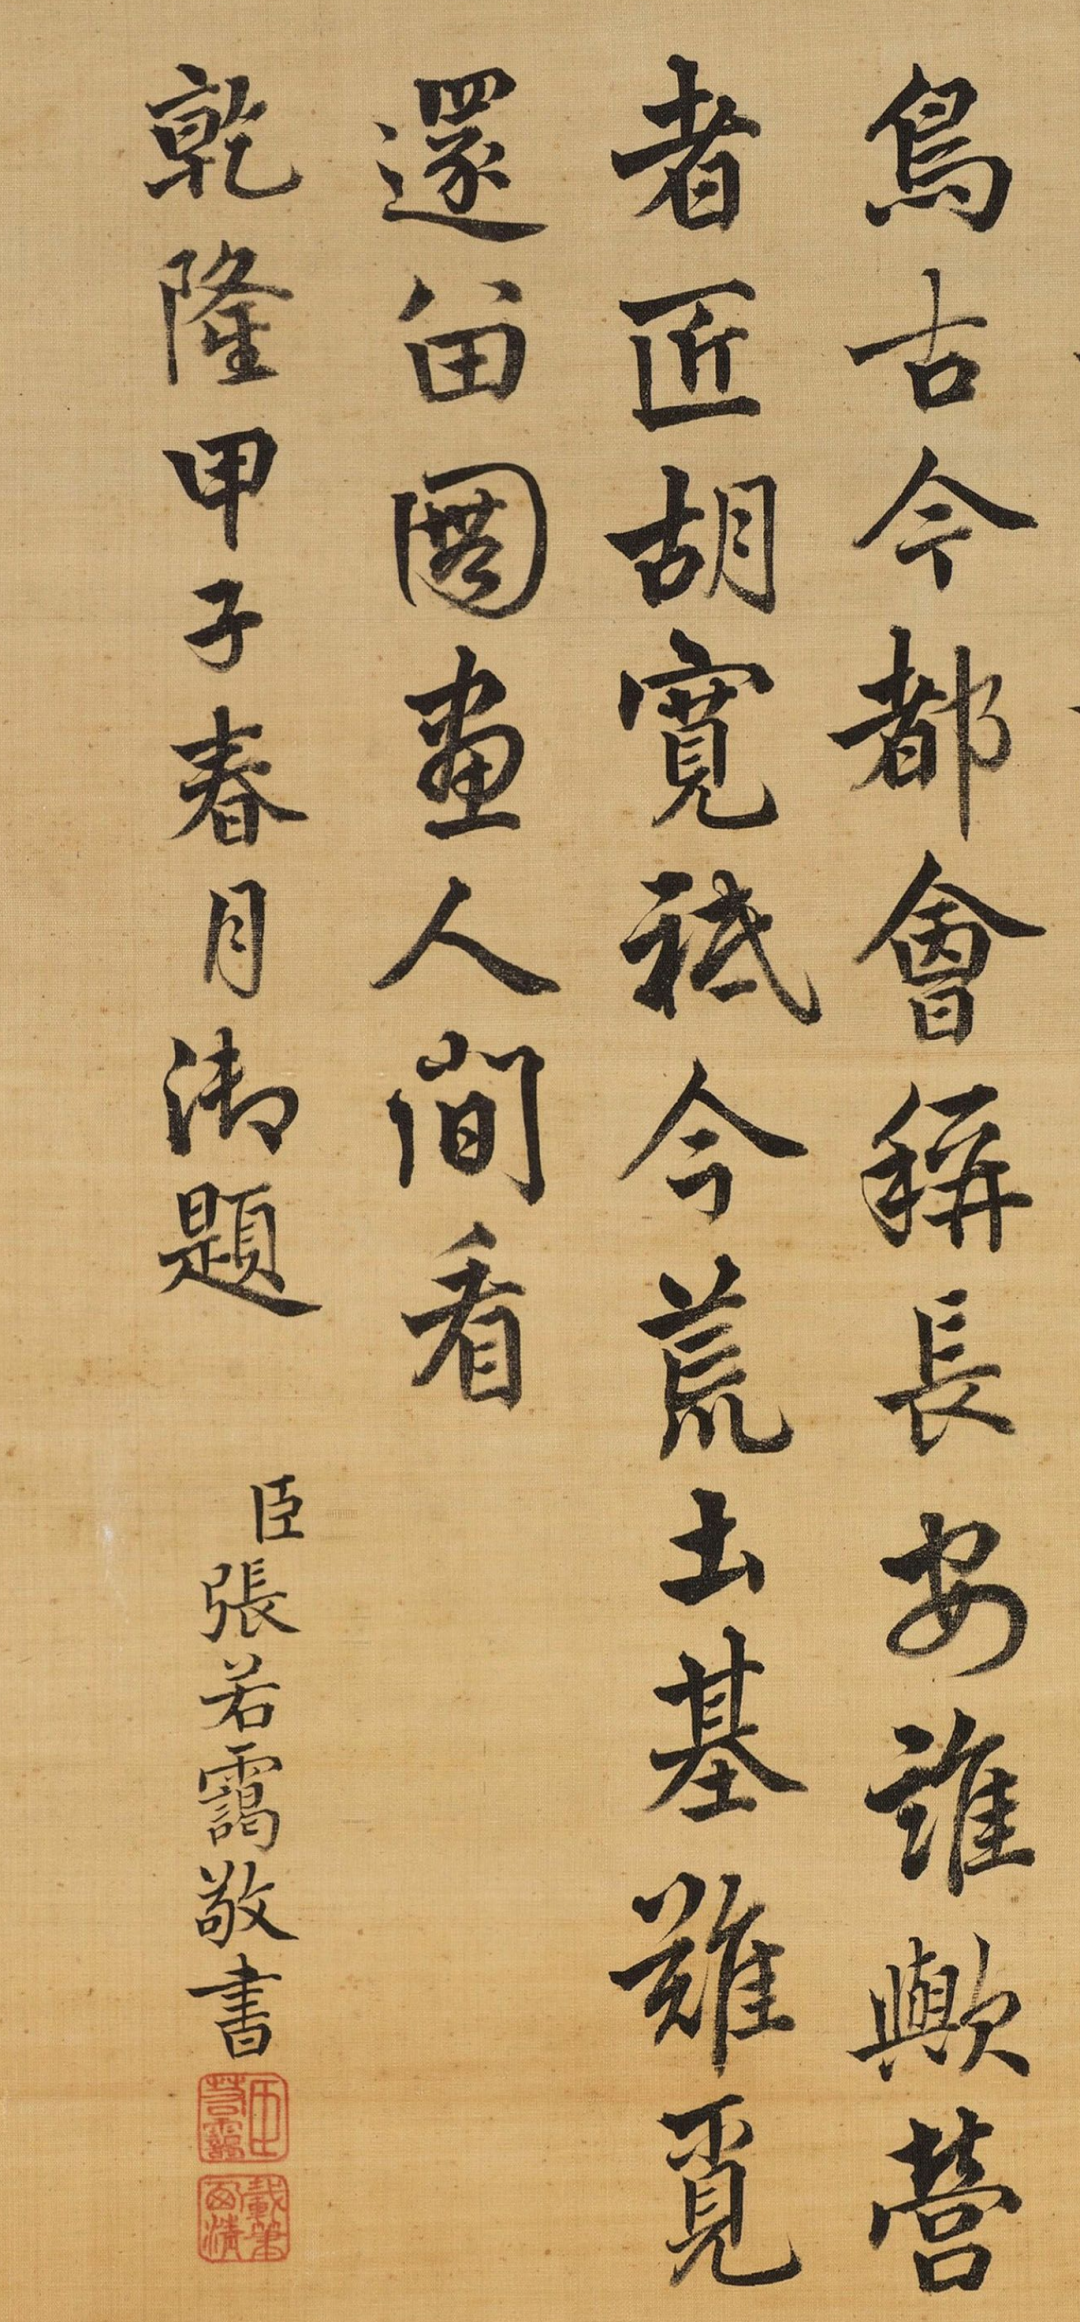 古今都會稱長安誰歟營
者匠胡寬祗今荒土基難覓
還留圖畫人間看
乾隆甲子春月御題
臣張若靄敬書
臣若靄
載筆西清